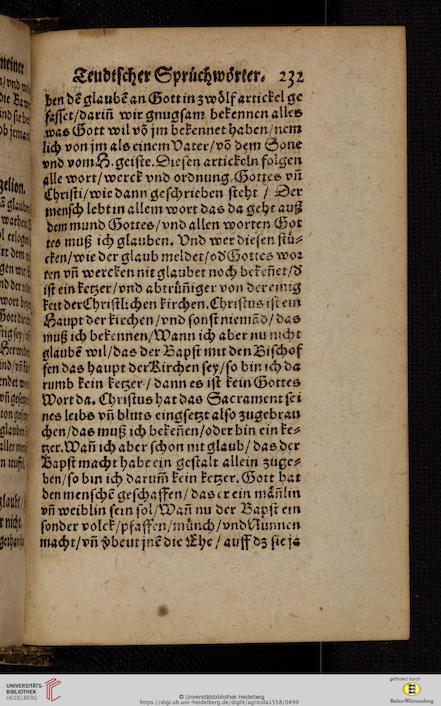 Teudtscher Sprüchwörter. 232
ben dē glaubē an Gott in zwölf artickel ge
fasset/dariñ wir gnugsam bekennen alles
was Gott wil vō jm bekennet haben/nem
lich von jm als einem Vater/vō dem Sone
vnd vom H. geiste. Diesen artickeln folgen
alle wort/werck vnd ordnung Gottes vñ
Christi/wie dann geschrieben steht / Der
mensch lebt in allem wort das da geht auß
dem mund Gottes/vnd allen worten Got
tes muß ich glauben. Vnd wer diesen stü-
cken/wie der glaub meldet/od' Gottes wor
ten vñ wercken nit glaubet noch bekeñet/d'
ist ein ketzer/vnd abtrünniger von der einig
keit der Christlichen kirchen. Christus ist ein
Haupt der kirchen/vnd sonst niemād/das
muß ich bekennen/Wann ich aber nu nicht
glaubē wil/das der Bapst mit den Bischof
fen das haupt der Kirchen sey/so bin ich da
rumb kein ketzer/dann es ist kein Gottes
Wort da. Christus hat das Sacrament sei
nes leibs vñ bluts eingesetzt also zugebrau
chen/das muß ich bekeñen/oder bin ein ke-
tzer. Wañ ich aber schon nit glaub/das der
Bapst macht habe ein gestalt allein zuge-
ben/so bin ich darum̃ kein ketzer. Gott hat
den menschē geschaffen/das er ein mäñlin
vñ weiblin sein sol/Wañ nu der Bapst ein
sonder volck/pfaffen/münch/vnd Nunnen
macht/vñ v̈beut jnē die Ehe/auff dz sie ja
UNIVERSITÄTS-
BIBLIOTHEK
HEIDELBERG
© Universitätsbibliothek Heidelberg
https://digi.ub.uni-heidelberg.de/diglit/agricola1558/0499
gefördert durch
Baden-Württemberg